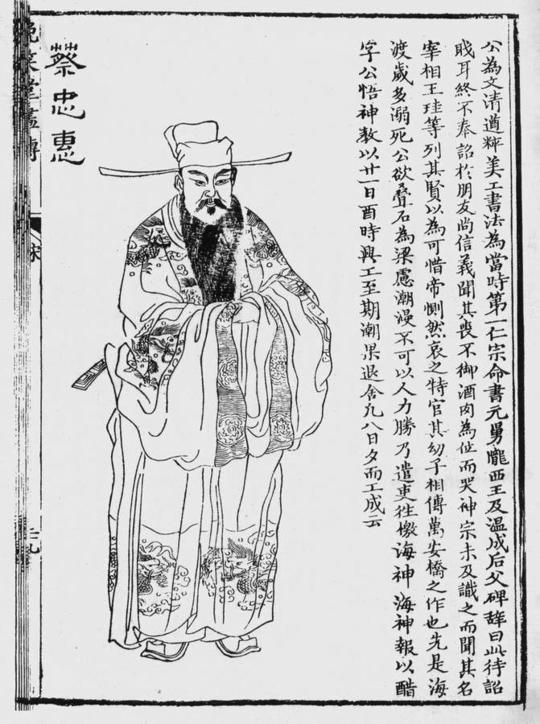 公為文清遒粹美工書法為當時第一仁宗命書元舅隴西王及温成后父碑辞曰此待詔
賎耳終不奉詔於朋友尚信義聞其喪不御酒肉為位而哭神宗未及識之而聞其名
宰相王珪等列其賢以為可惜帝惻然哀之特官其幼子相傳萬安橋之作也先是海
渡歲多溺死公欲叠石為梁慮潮漫不可以人力勝乃遣吏往檄海神海神報以醋
字公悟神教以廿一日酉時興工至期潮果退舍凡八日夕而工成云
蔡忠惠
晚笑堂畫傳